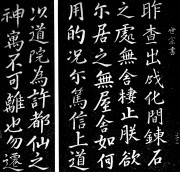 世宗書
昨查出戌化間鍊石
之處無舍棲止朕欲
尔居之無屋舍如何
用的況尔篤信上道
以道院為許都仙之
神寓不可離也勿遷